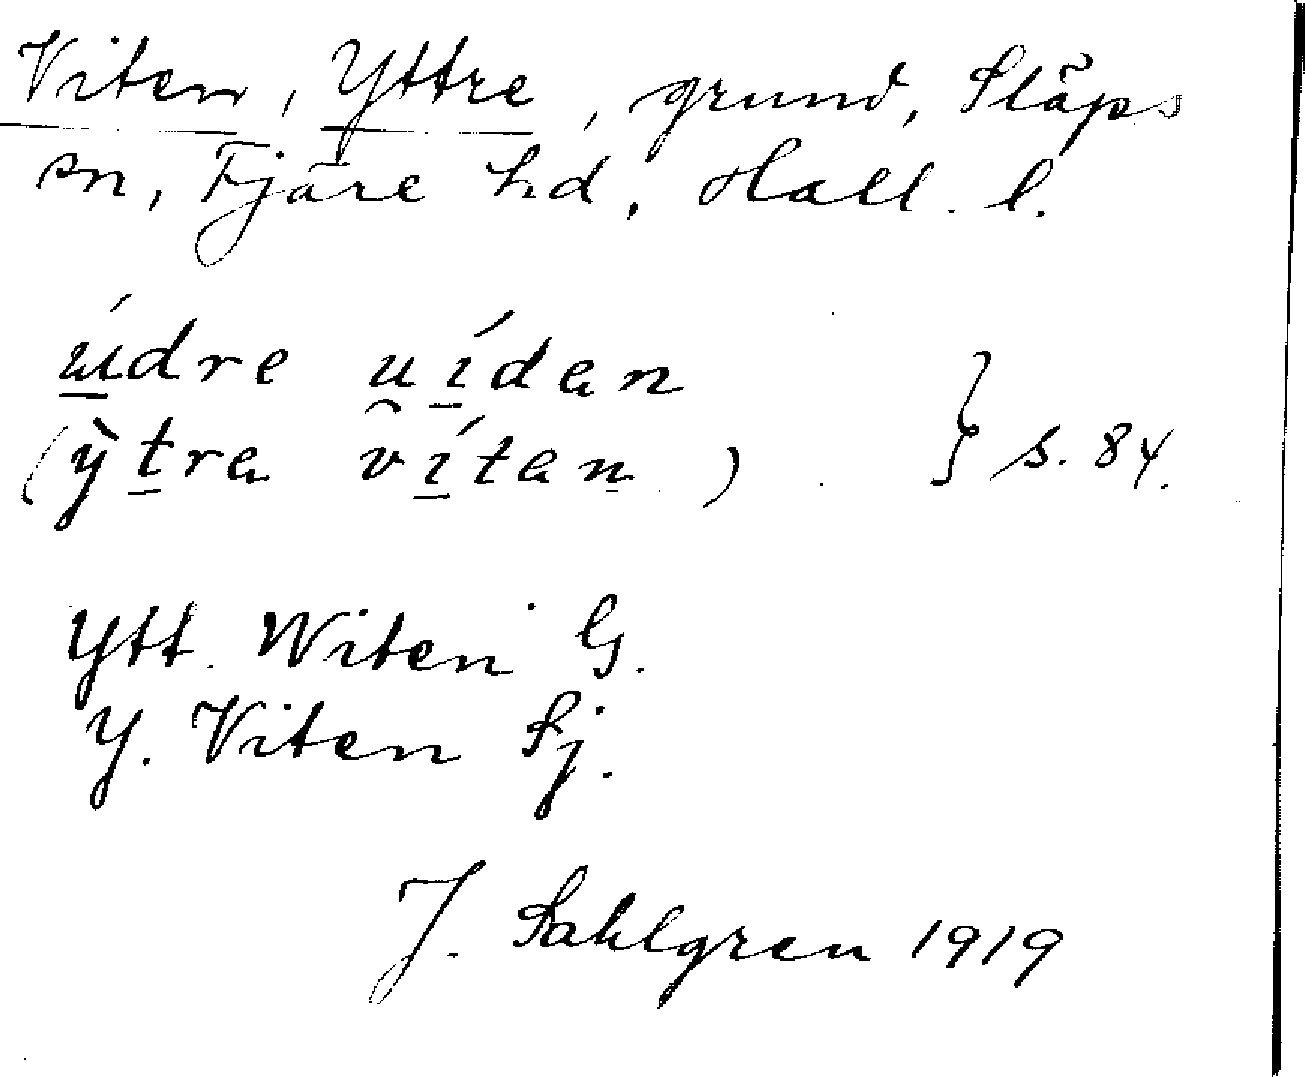 Viten, Yttre, grund, Släps
sn, Fjäre hd, Hall. l.
ú̲dre u̯í̲dan
(ỳt̲ra ví̲tan̲) } s. 84.
Ytt. Witen G.
Y. Viten Sj.
J. Sahlgren 1919